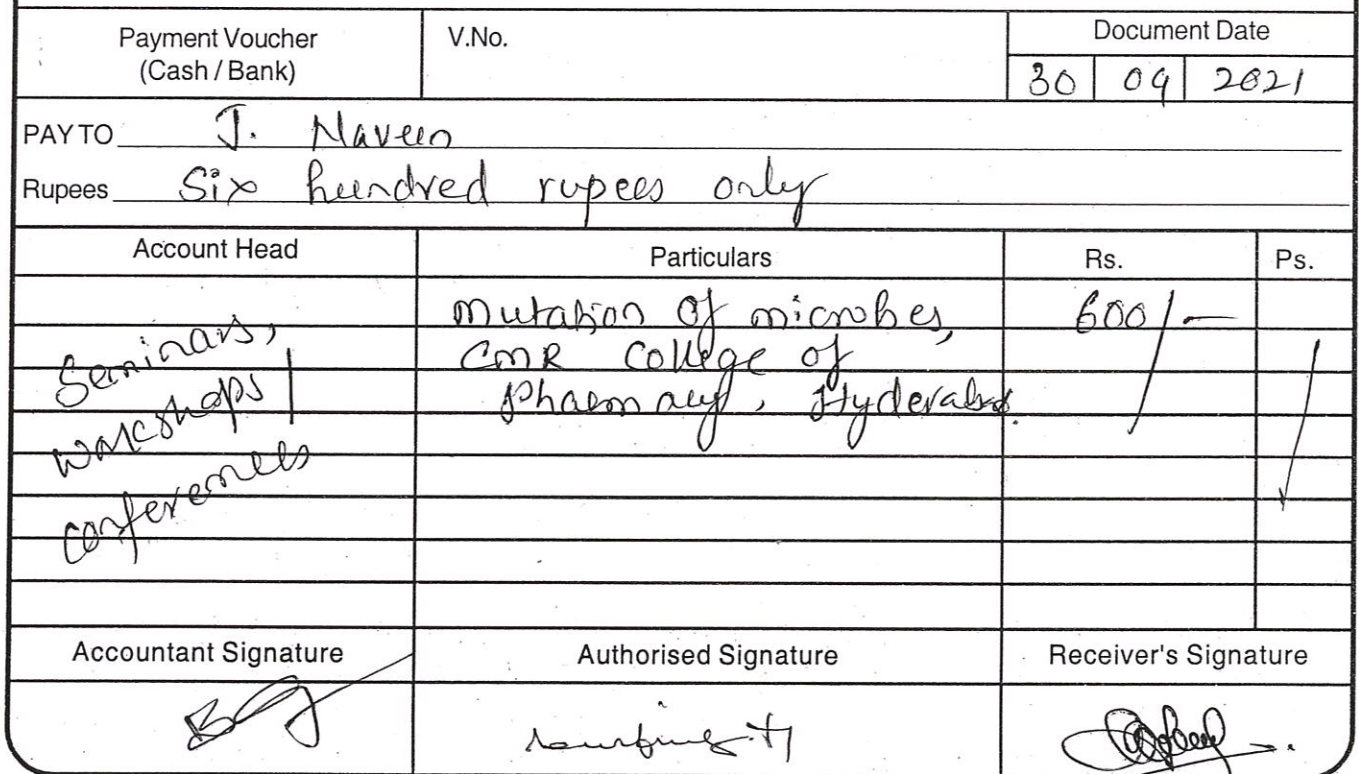 Payment Voucher
(Cash / Bank)
V.No.
Document Date
30 09 2021
PAY TO J. Naveen
Rupees Six hundred rupees only
Account Head
Particulars
Rs.
Ps.
Seminars,
workshops /
conferences
Mutation of microbes,
CMR College of
Pharmacy, Hyderabad.
600/-
Accountant Signature
Authorised Signature
Receiver's Signature